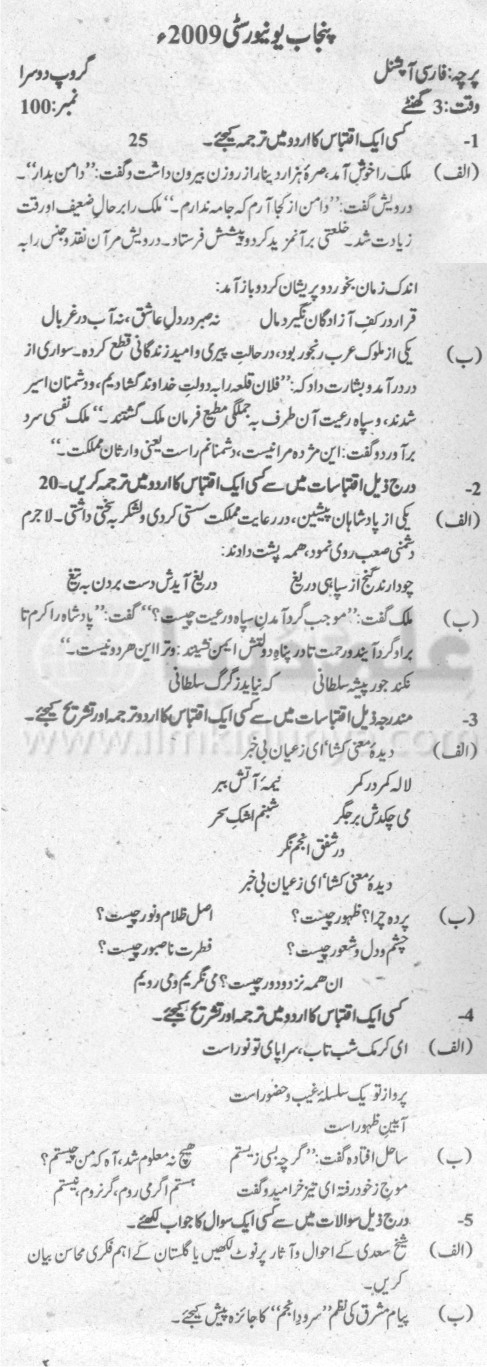 پنجاب یونیورسٹی 2009ء
پرچہ: فارسی آپشنل گروپ دوسرا
وقت: 3 گھنٹے نمبر: 100
1- کسی ایک اقتباس کا اردو میں ترجمہ کیجئے۔ 25
(الف) ملک را خوش آمد، صرۂ ہزار دینار از روزن بیرون داشت و گفت: ”دامن بدار“۔
درویش گفت: ”دامن از کجا آرم کہ جامہ ندارم۔“ ملک را بر حالِ ضعیف او رقت
زیادت شد۔ خلعتی بر آن مزید کرد و پیشش فرستاد۔ درویش مر آن نقد و جنس را بہ
اندک زمان بخورد و پریشان کرد و باز آمد:
قرار در کفِ آزادگان نگیرد مال نہ صبر در دلِ عاشق، نہ آب در غربال
(ب) یکی از ملوک عرب رنجور بود، در حالت پیری و امید زندگانی قطع کردہ۔ سواری از
در درآمد و بشارت داد کہ: ”فلان قلعہ را بہ دولتِ خداوند کشادیم، و دشمنان اسیر
شدند، و سپاہ رعیت آن طرف بہ جملگی مطیع فرمان ملک گشتند۔“ ملک نفسی سرد
برآورد و گفت: این مژدہ مرا نیست، دشمنانم راست یعنی وارثان مملکت۔“
2- درج ذیل اقتباسات میں سے کسی ایک اقتباس کا اردو میں ترجمہ کریں۔ 20
(الف) یکی از پادشاہان پیشین، در رعایت مملکت سستی کردی و لشکر بہ سختی داشتی۔ لاجرم
دشمنی صعب روی نمود، ہمہ پشت دادند:
چو دارند گنج از سپاہی دریغ دریغ آیدش دست بردن بہ تیغ
(ب) ملک گفت: ”موجب گرد آمدنِ سپاہ و رعیت چیست؟“ گفت: ”پادشاہ را کرم تا
برا و گرد آیند و رحمت تا در پناہِ دولتش ایمن نشینند: و ترا این ہر دو نیست۔“
نکند جور پیشہ سلطانی کہ نیاید ز گرگ سلطانی
3- مندرجہ ذیل اقتباسات میں سے کسی ایک اقتباس کا اردو ترجمہ اور تشریح کیجئے۔
www.ilmkidunya.com
(الف) دیدۂ معنی کشا، ای ز عیان بی خبر
لالہ کمر در کمر نیمۂ آتش ببر
می چکدش بر جگر شبنم اشکِ سحر
در شفق انجم نگر
دیدۂ معنی کشا، ای ز عیان بی خبر
(ب) پردہ چرا؟ ظہور چیست؟ اصل ظلام و نور چیست؟
چشم و دل و شعور چیست؟ فطرت ناصبور چیست؟
ان ہمہ نزد و دور چیست؟ می نگریم و می رویم
4- کسی ایک اقتباس کا اردو میں ترجمہ اور تشریح کیجئے۔
(الف) ای کرمک شب تاب، سراپای تو نور است
پرواز تو یک سلسلۂ غیب و حضور است
آیین ظہور است
(ب) ساحل افتادہ گفت: ”گرچہ بسی زیستم ہیچ نہ معلوم شد، آہ کہ من چیستم؟
موج ز خود رفتہ ای تیز خرامید و گفت ہستم اگر می روم، گر نروم، نیستم
5- درج ذیل سوالات میں سے کسی ایک سوال کا جواب لکھئے۔
(الف) شیخ سعدی کے احوال و آثار پر نوٹ لکھیں یا گلستان کے اہم فکری محاسن بیان
کریں۔
(ب) پیام مشرق کی نظم ”سرود انجم“ کا جائزہ پیش کیجئے۔